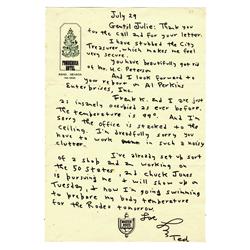 July 29
Gentil Julie: Thank you
for the call and for your letter.
I have stubbed the City
Treasurer, which makes me feel
very secure.
You have beautifully got rid
of Mr. W.C. Peterson
And I look forward to
your report on Al Perkins
Enterprises, Inc.
Frank K. and I are just
as insanely occupied as ever before.
The temperature is 99°. And I'm
Ceiling. Sorry the office is stacked to the
I'm dreadfully sorry you
have to work in such a noisy
clutter.
I've already set up sort
of a shop and am working on
the 50 States and Chuck Jones
is pursuing me + will show up on
Tuesday, + now I'm going swimming
to prepare my body temperature
for the Rodeo tomorrow.
Love
Ted